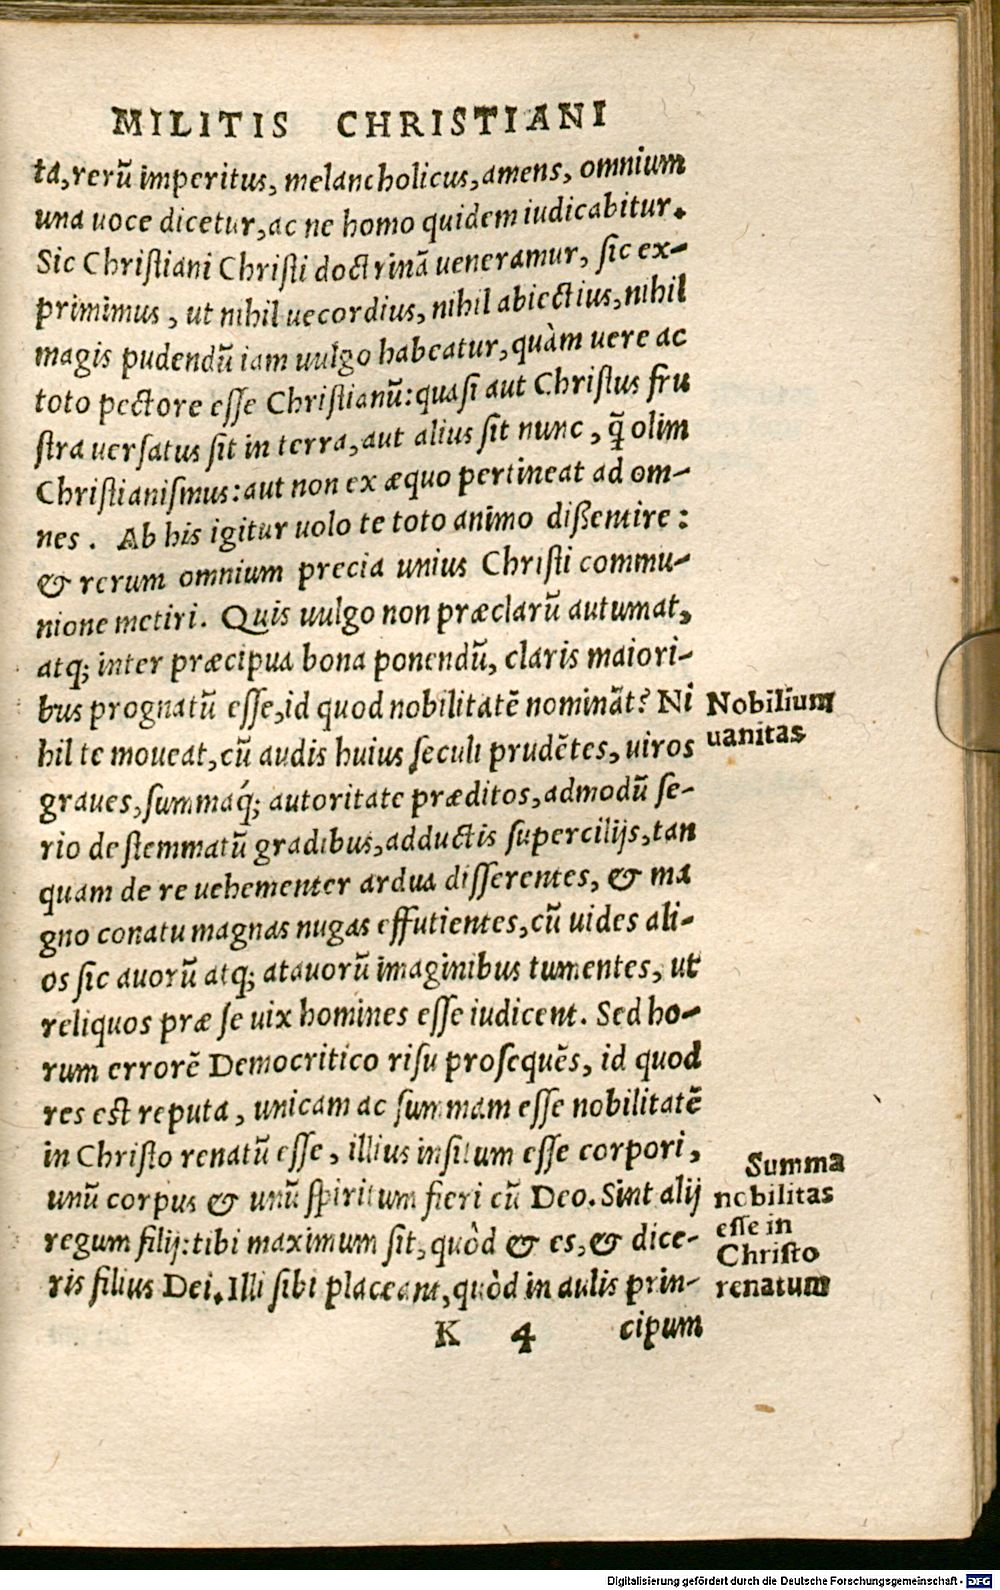 MILITIS CHRISTIANI
ta, rerū imperitus, melancholicus, amens, omnium
una uoce dicetur, ac ne homo quidem iudicabitur.
Sic Christiani Christi doctrinā ueneramur, sic ex-
primimus, ut nihil uecordius, nihil abiectius, nihil
magis pudendū iam uulgo habeatur, quàm uere ac
toto pectore esse Christianū: quasi aut Christus fru
stra uersatus sit in terra, aut alius sit nunc, q̃ olim
Christianismus: aut non ex æquo pertineat ad om-
nes. Ab his igitur uolo te toto animo dißentire:
& rerum omnium precia unius Christi commu-
nione metiri. Quis uulgo non præclarū autumat,
atq; inter præcipua bona ponendū, claris maiori-
bus prognatū esse, id quod nobilitatē nomināt? Ni
hil te moueat, cū audis huius seculi prudētes, uiros
graues, summaq́; autoritate præditos, admodū se-
rio de stemmatū gradibus, adductis supercilijs, tan
quam de re uehementer ardua disserentes, & ma
gno conatu magnas nugas effutientes, cū uides ali-
os sic auorū atq; atauorū imaginibus tumentes, ut
reliquos præ se uix homines esse iudicent. Sed ho-
rum errorē Democritico risu prosequēs, id quod
res est reputa, unicam ac summam esse nobilitatē
in Christo renatū esse, illius insitum esse corpori,
unū corpus & unū spiritum fieri cū Deo. Sint alij
regum filij: tibi maximum sit, quòd & es, & dice-
ris filius Dei. Illi sibi placeant, quòd in aulis prin-
K 4 cipum
Nobilium
uanitas
Summa
nobilitas
esse in
Christo
renatum
Digitalisierung gefördert durch die Deutsche Forschungsgemeinschaft - DFG